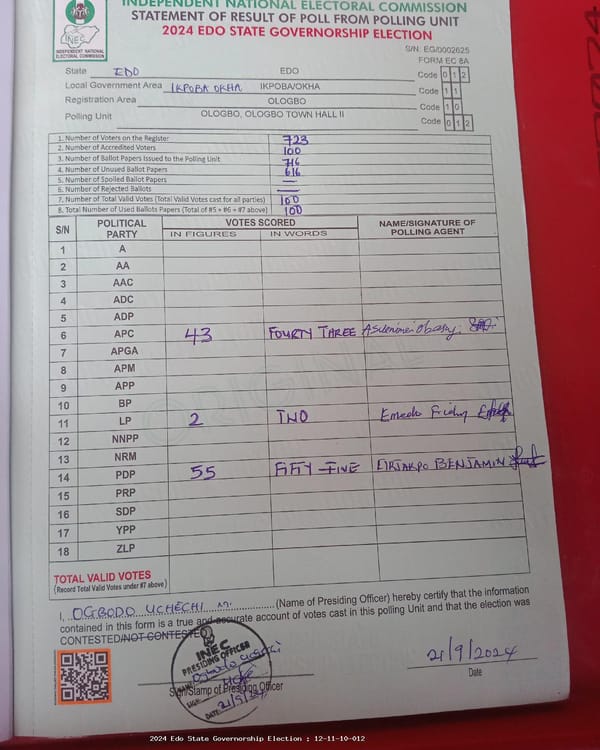 INDEPENDENT NATIONAL ELECTORAL COMMISSION
STATEMENT OF RESULT OF POLL FROM POLLING UNIT
2024 EDO STATE GOVERNORSHIP ELECTION
INEC
INDEPENDENT NATIONAL ELECTORAL COMMISSION
S/N: EG/0002625
FORM EC 8A
State EDO EDO Code 0 1 2
Local Government Area IKPOBA OKHA IKPOBA/OKHA Code 1 1
Registration Area OLOGBO Code 1 0
Polling Unit OLOGBO, OLOGBO TOWN HALL II Code 0 1 2
1. Number of Voters on the Register 723
2. Number of Accredited Voters 100
3. Number of Ballot Papers Issued to the Polling Unit 716
4. Number of Unused Ballot Papers 616
5. Number of Spoiled Ballot Papers —
6. Number of Rejected Ballots —
7. Number of Total Valid Votes (Total Valid Votes cast for all parties) 100
8. Total Number of Used Ballots Papers (Total of #5 + #6 + #7 above) 100
S/N POLITICAL PARTY VOTES SCORED NAME/SIGNATURE OF POLLING AGENT
IN FIGURES IN WORDS
1 A
2 AA
3 AAC
4 ADC
5 ADP
6 APC 43 FOURTY THREE
7 APGA
8 APM
9 APP
10 BP
11 LP 2 TWO Friday
12 NNPP
13 NRM
14 PDP 55 FIFTY-FIVE BENJAMIN
15 PRP
16 SDP
17 YPP
18 ZLP
TOTAL VALID VOTES
(Record Total Valid Votes under #7 above)
I, OGBODO UCHECHI M. (Name of Presiding Officer) hereby certify that the information
contained in this form is a true and accurate account of votes cast in this polling Unit and that the election was
CONTESTED/NOT CONTESTED
INEC
PRESIDING OFFICER
NAME Ogbodo Uchechi
SIGN
DATE 21/9/24
Sign/Stamp of Presiding Officer
21/9/2024
Date
ORIGINAL
2024 Edo State Governorship Election : 12-11-10-012